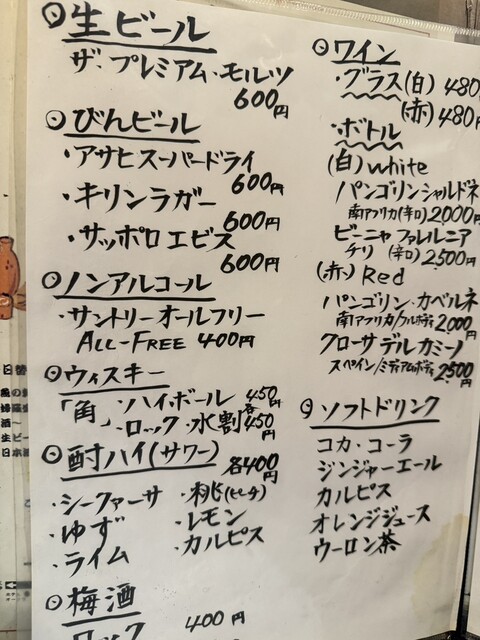 ◎生ビール
ザ・プレミアム・モルツ
600円
◎びんビール
・アサヒスーパードライ
600円
・キリンラガー
600円
・サッポロエビス
600円
◎ノンアルコール
・サントリーオールフリー
ALL-FREE 400円
◎ウィスキー
「角」・ハイボール 450円
・ロック・水割 各450円
◎酎ハイ(サワー) 各400円
・シークァーサ ・桃(ピーチ)
・ゆず ・レモン
・ライム ・カルピス
◎梅酒
ロック 400円
◎ワイン
・グラス(白) 480円
(赤) 480円
・ボトル
(白) white
パンゴリンシャルドネ
南アフリカ(辛口) 2,000円
ビーニャ ファレルニア
チリ (辛口) 2,500円
(赤) Red
パンゴリン・カベルネ
南アフリカ/フルボディ 2,000円
クローサ デル カミーノ
スペイン/ミディアムボディ 2,500円
◎ソフトドリンク
コカ・コーラ
ジンジャーエール
カルピス
オレンジジュース
ウーロン茶